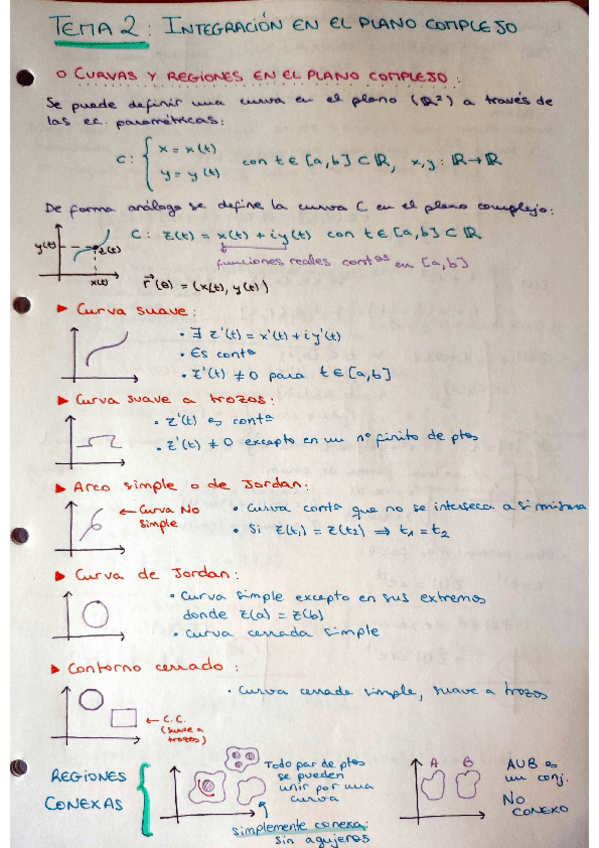 TEMA 2: INTEGRACIÓN EN EL PLANO COMPLEJO
o CURVAS Y REGIONES EN EL PLANO COMPLEJO:
Se puede definir una curva en el plano (ℝ²) a través de
las ec. paramétricas:
C: { x = x(t)
y = y(t)
con t ∈ [a,b] ⊂ ℝ, x,y: ℝ→ℝ
De forma análoga se define la curva C en el plano complejo:
y(t)
z(t)
x(t)
C: z(t) = x(t) + iy(t) con t ∈ [a,b] ⊂ ℝ
funciones reales contᵃˢ en [a,b]
r⃗(θ) = (x(t), y(t))
► Curva suave:
• ∃ z'(t) = x'(t) + iy'(t)
• Es contᵃ
• z'(t) ≠ 0 para t ∈ [a,b]
► Curva suave a trozos:
• z'(t) es contᵃ
• z'(t) ≠ 0 excepto en un nº finito de ptos
► Arco simple o de Jordan:
← Curva No
simple
• Curva contᵃ que no se interseca a si misma
• Si z(t₁) = z(t₂) ⟹ t₁ = t₂
► Curva de Jordan:
• Curva simple excepto en sus extremos
donde z(a) = z(b)
• Curva cerrada simple
► Contorno cerrado:
• Curva cerrada simple, suave a trozos
← C.C.
(suave a
trozos)
REGIONES
CONEXAS
Todo par de ptos
se pueden
unir por una
curva
simplemente conexa:
sin agujeros
A B
AUB es
un conj.
NO
CONEXO